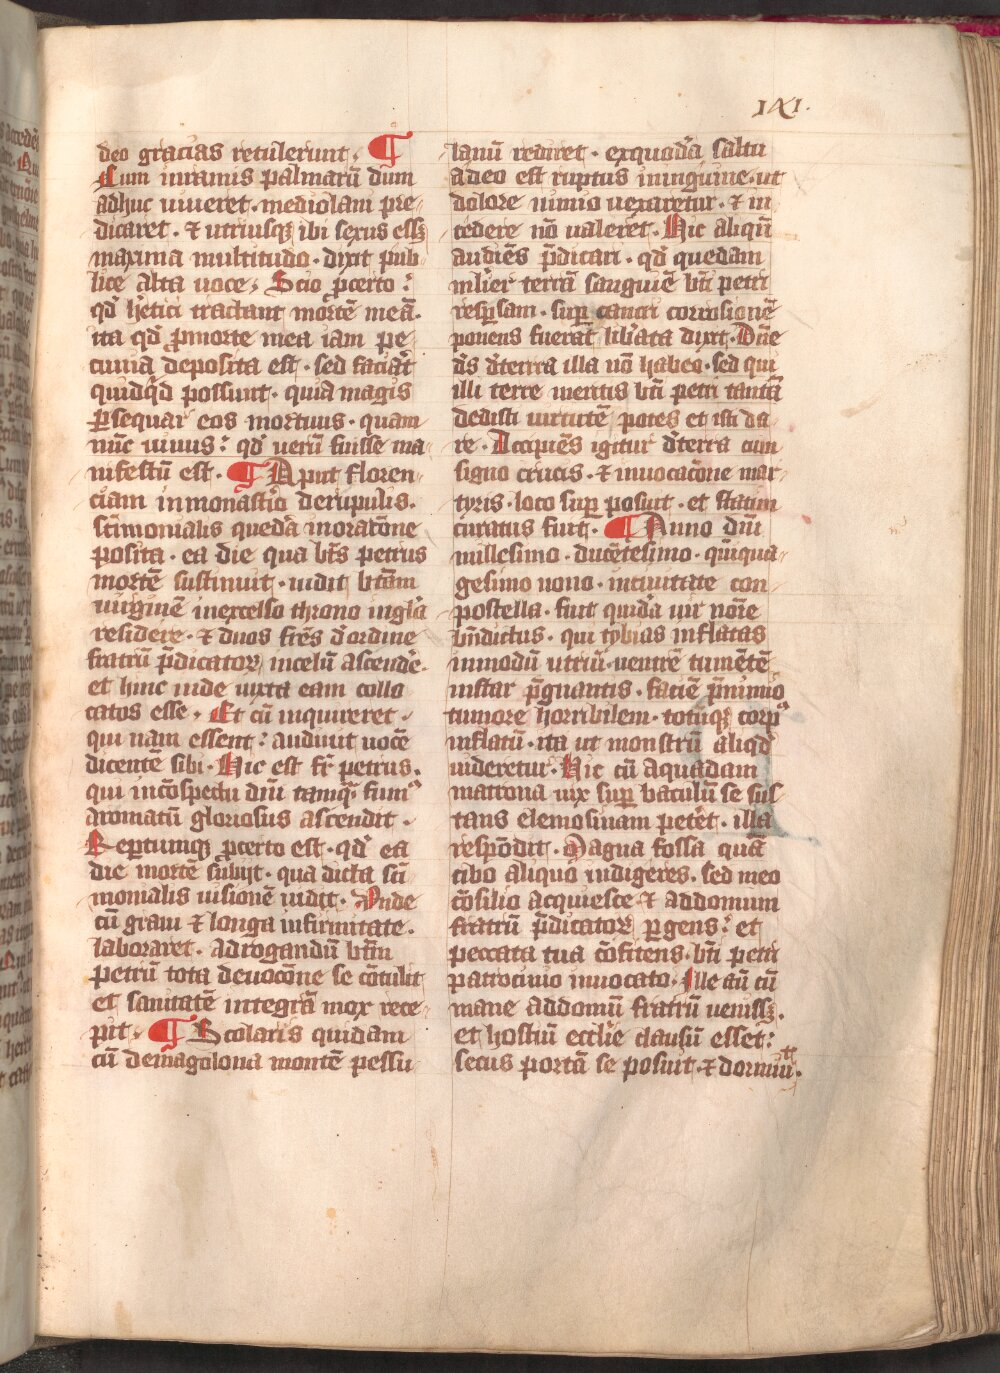 lxi.
deo gracias retulerunt. ¶
Cum inramis palmarū dum
adhuc uiueret · mediolani pre
dicaret · ⁊ utriusqȝ ibi sexus essȝ
maxima multitudo · dixit pub
lice alta uoce · Scio ꝓcerto :
qd̓ h̓etici tractant mortē meā ·
ita qd̓ ꝓmorte mea iam pe
cunia deposita est · sed faciāt
quidq̓d possunt · quia magis
ꝑsequar eos mortuus · quam
nūc uiuus : qd̓ uerū fuisse ma
nifestū est · ¶ Aput floren
ciam inmonast̓io deripulis ·
sc̄imonialis quedā inorac̄one
posita · ea die qua bt̄s petrus
mortē sustinuit · uidit bt̄am
uirginē inexcelso throno inglā
residere · ⁊ duos fr̄es d̓ ordine
fratrū p̄dicatoꝝ incelū ascendē ·
et hinc inde iuxta eam collo
catos esse · Et cū inquireret ·
qui nam essent : audiuit uocē
dicentē sibi · Hic est fr̄ petrus ·
qui incōspectu dn̄i tamq̄ fumꝰ
aromatū gloriosus ascendit ·
Repertumqȝ ꝓcerto est · qd̓ ea
die mortē subijt · qua dicta sc̄i
monialis uisionē uidit · Vnde
cū graui ⁊ longa infirmitate ·
laboraret · adrogandū bt̄m
petrū tota deuoc̄one se cōtulit
et sanitatē integrā mox rece
pit · ¶ Scolaris quidam
cū demagolona montē pessu
lanū rediret · exquodā saltu
adeo est ruptus ininguine · ut
dolore nimio uexaretur · ⁊ in
cedere nō ualeret · Hic aliqn̄
audiēs p̄dicari · qd̓ quedam
mulier terrā sanguiē bt̄i petri
resꝑsam · suꝑ cancri corrosionē
ponens fuerat lib̓ata dixit · Dn̄e
ds̄ d̓terra illa nō habeo · sed qui
illi terre meritis bt̄i petri tantā
dedisti uirtutē potes et isti da
re · Accipiēs igitur d̓terra cum
signo crucis · ⁊ inuocac̄one mar
tyris · loco suꝑ posuit · et statim
curatus fuit · ¶ Anno dn̄i
millesimo · ducētesimo · quīqua
gesimo nono · inciuitate con
postella · fuit quidā uir nōie
bn̄dictus · qui tybias inflatas
inmodū utriū · uentrē tumētē
instar p̄gnantis · faciē p̄nimio
tumore horribilem · totūqȝ corpꝰ
inflatū · ita ut monstrū aliqd̓
uideretur · Hic cū aquadam
matrona uix suꝑ baculū se sus
tans elemosinam petēt · illa
respōdit · Magna fossa quā
cibo aliquo indigeres · sed meo
cōsilio acquiesce ⁊ addomum
fratrū p̄dicatoꝝ ꝑgens : et
peccata tua cōfitens · bt̄i petri
patrocinio inuocato · Ille aūt cū
mane addomū fratrū uenissȝ ·
et hostiū ecclīe clausū esset :
secus portā se posuit · ⁊ dormiuīt ·